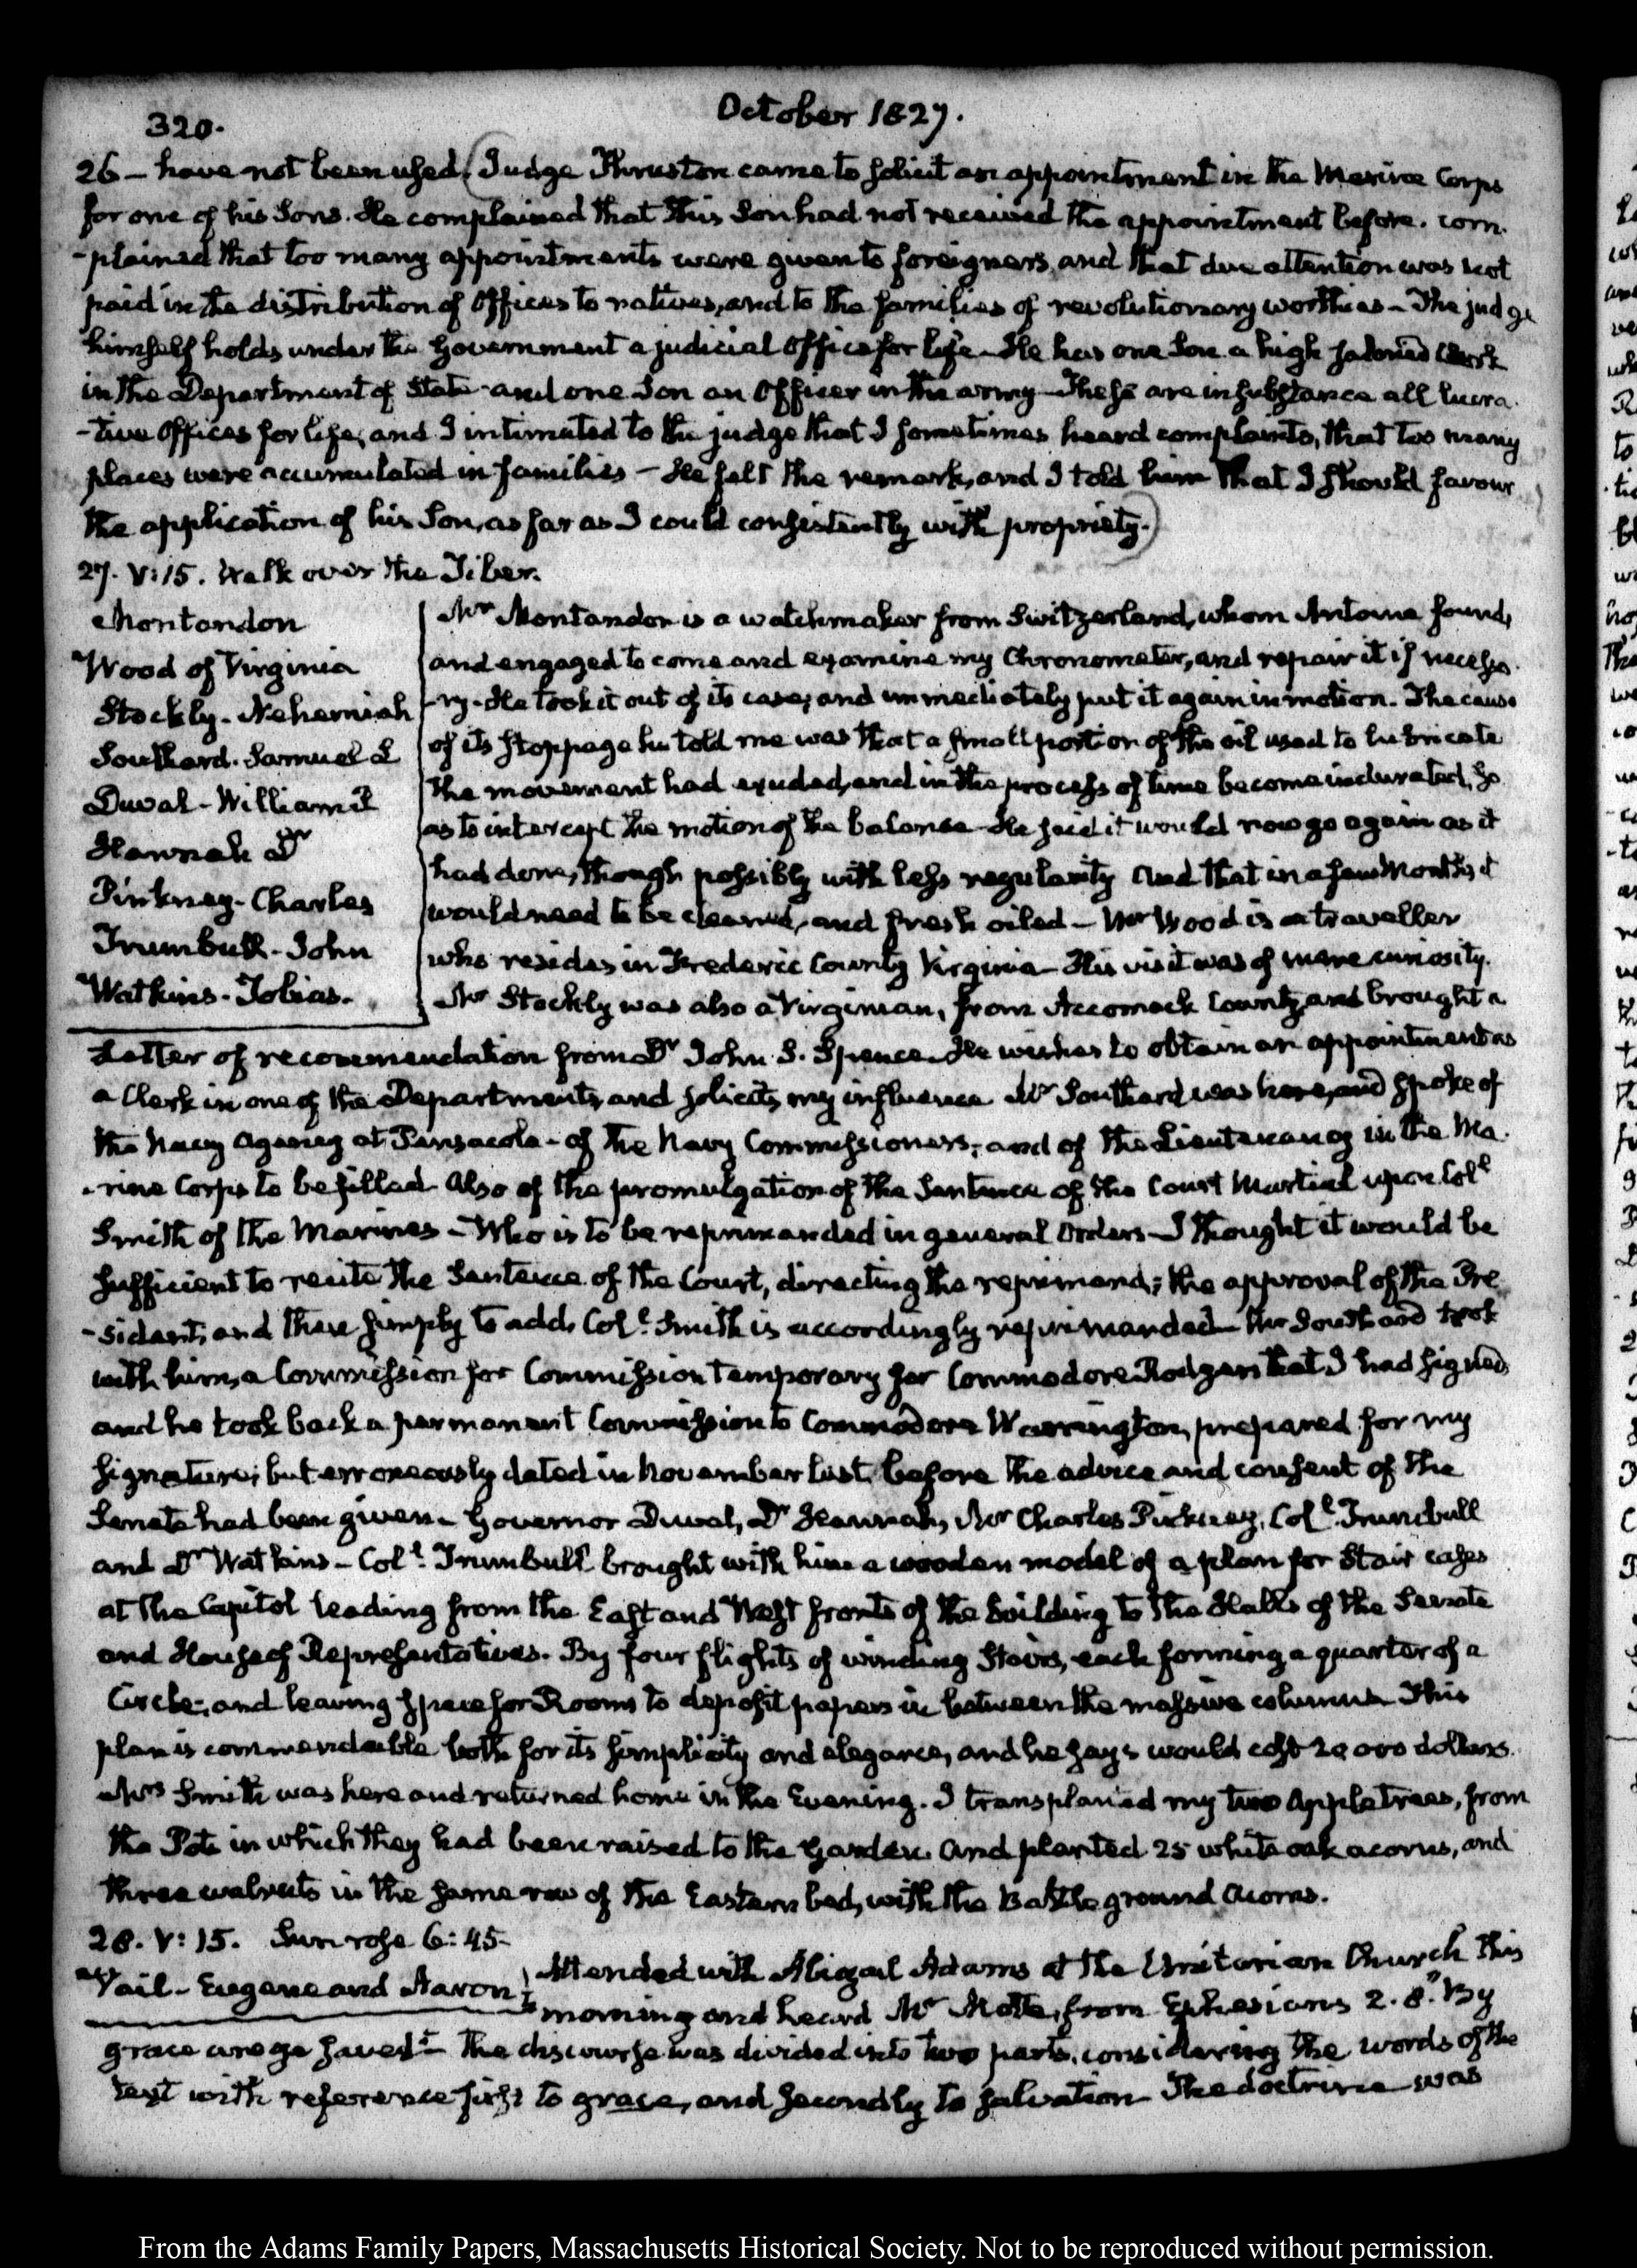 320.
October 1827.
26 – have not been used. (Judge Thruston came to solicit an appointment in the Marine Corps
for one of his Sons. He complained that this Son had not received the appointment before. com-
-plained that too many appointments were given to foreigners, and that due attention was not
paid in the distribution of Offices to natives, and to the families of revolutionary worthies – The judge
himself holds under the Government a judicial Office for life – He has one Son a high salaried Clerk
in the Department of State – and one Son an Officer in the army – These are in substance all lucra-
-tive Offices for life; and I intimated to the judge that I sometimes heard complaints, that too many
places were accumulated in families – He felt the remark, and I told him that I should favour
the application of his Son, as far as I could consistently with propriety.)
27. V:15. Walk over the Tiber.
Montandon
Wood of Virginia
Stockly - Nehemiah
Southard. Samuel L
Duval - William P
Hannah Dr
Pinkney - Charles
Trumbull - John
Watkins - Tobias.
Mr Montandon is a watchmaker from Switzerland, whom Antoine found,
and engaged to come and examine my Chronometer, and repair it if necessa-
-ry. He took it out of its case, and immediately put it again in motion. The cause
of its stoppage he told me was that a small portion of the oil used to lubricate
the movement had exuded, and in the process of time become indurated, so
as to intercept the motion of the balance – He said it would now go again as it
had done, though possibly with less regularity and that in a few Months it
would need to be cleaned, and fresh oiled – Mr Wood is a traveller
who resides in Frederic County Virginia – His visit was of mere curiosity.
Mr Stockly was also a Virginian, from Accomack County, and brought a
Letter of recommendation from Dr John S. Spence. He wishes to obtain an appointment as
a Clerk in one of the Departments, and solicits my influence Mr Southard was here, and spoke of
the Navy Agency at Pensacola – of the Navy Commissioners; and of the Lieutenancy in the Ma-
-rine Corps to be filled. Also of the promulgation of the Sentence of the Court Martial upon Colt
Smith of the Marines – Who is to be reprimanded in general Orders – I thought it would be
sufficient to recite the Sentence of the Court, directing the reprimand; the approval of the Pre-
-sident; and then simply to add, Colt Smith is accordingly reprimanded – Mr Southard took
with him, a Commission for Commission temporary for Commodore Rodgers that I had signed,
and he took back a permanent Commission to Commodore Warrington, prepared for my
Signature; but erroneously dated in November last, before the advice and consent of the
Senate had been given – Governor Duval, Dr Hannah, Mr Charles Pinkney, Colt Trumbull
and Dr Watkins – Colt Trumbull brought with him a wooden model of a plan for Stair cases
at the Capitol leading from the East and West fronts of the building to the Halls of the Senate
and House of Representatives. By four flights of winding Stairs, each forming a quarter of a
Circle; and leaving space for Rooms to deposit papers in between the massive columns This
plan is commendable both for its simplicity and elegance, and he says would cost 20 000 dollars.
Mrs Smith was here and returned home in the Evening. I transplanted my two Apple trees, from
the Pots in which they had been raised to the Garden. And planted 25 white oak acorns, and
three walnuts in the same row of the Eastern bed, with the Battle ground Acorns.
28. V:15. Sun rose 6:45-
Vail - Eugene and Aaron
Attended with Abigail Adams at the Unitarian Church this
morning and heard Mr Motte, from Ephesians 2. 8. "By
grace are ye saved" – The discourse was divided into two parts, considering the words of the
text with reference first to grace, and secondly to salvation – The doctrine was
From the Adams Family Papers, Massachusetts Historical Society. Not to be reproduced without permission.